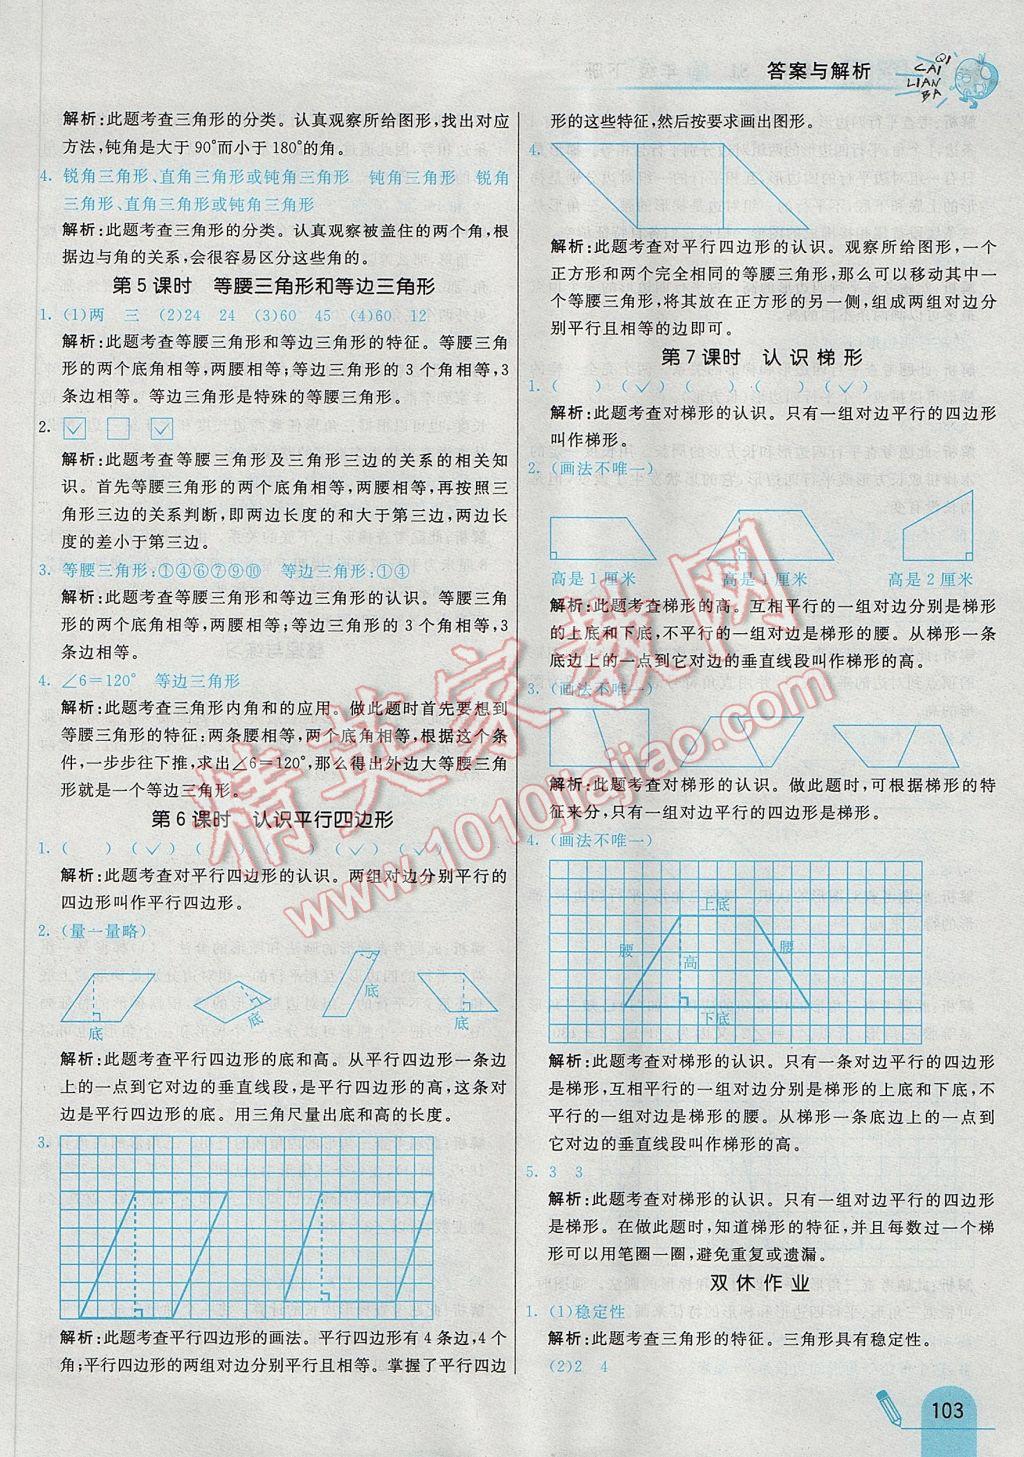 答案与解析
QI
CAI
LIAN
BA
解析:此题考查三角形的分类。认真观察所给图形,找出对应
方法,钝角是大于90°而小于180°的角。
4. 锐角三角形、直角三角形或钝角三角形 钝角三角形 锐角
三角形、直角三角形或钝角三角形
解析:此题考查三角形的分类。认真观察被盖住的两个角,根
据边与角的关系,会很容易区分这些角的。
第5课时 等腰三角形和等边三角形
1. (1)两 三 (2)24 24 (3)60 45 (4)60 12
解析:此题考查等腰三角形和等边三角形的特征。等腰三角
形的两个底角相等,两腰相等;等边三角形的3个角相等,3
条边相等。等边三角形是特殊的等腰三角形。
2. ✓ ✓
解析:此题考查等腰三角形及三角形三边的关系的相关知
识。首先等腰三角形的两个底角相等,两腰相等,再按照三
角形三边的关系判断,即两边长度的和大于第三边,两边长
度的差小于第三边。
3. 等腰三角形:①④⑥⑦⑨⑩ 等边三角形:①④
解析:此题考查等腰三角形和等边三角形的认识。等腰三角
形的两个底角相等,两腰相等;等边三角形的3个角相等,3
条边相等。
4. ∠6=120° 等边三角形
解析:此题考查三角形内角和的应用。做此题时首先要想到
等腰三角形的特征:两条腰相等,两个底角相等,根据这个条
件,一步步往下推,求出∠6=120°,那么得出外边大等腰三角
形就是一个等边三角形。
第6课时 认识平行四边形
1. ( ) (✓) ( ) ( ) (✓) (✓)
解析:此题考查对平行四边形的认识。两组对边分别平行的
四边形叫作平行四边形。
2. (量一量略)
底 底 底 底
解析:此题考查平行四边形的底和高。从平行四边形一条边
上的一点到它对边的垂直线段,是平行四边形的高,这条对
边是平行四边形的底。用三角尺量出底和高的长度。
3.
解析:此题考查平行四边形的画法。平行四边形有4条边,4个
角;平行四边形的两组对边分别平行且相等。掌握了平行四边
形的这些特征,然后按要求画出图形。
4.
解析:此题考查对平行四边形的认识。观察所给图形,一个
正方形和两个完全相同的等腰三角形,那么可以移动其中一
个三角形,将其放在正方形的另一侧,组成两组对边分
别平行且相等的边即可。
第7课时 认识梯形
1. ( ) (✓) ( ) ( ) (✓)
解析:此题考查对梯形的认识。只有一组对边平行的四边形
叫作梯形。
2. (画法不唯一)
高是1厘米 高是1厘米 高是2厘米
解析:此题考查梯形的高。互相平行的一组对边分别是梯形
的上底和下底,不平行的一组对边是梯形的腰。从梯形一条
底边上的一点到它对边的垂直线段叫作梯形的高。
3. (画法不唯一)
解析:此题考查对梯形的认识。做此题时,可根据梯形的特
征来分,只有一组对边平行的四边形是梯形。
4. (画法不唯一)
上底
腰 高 腰
下底
解析:此题考查对梯形的认识。只有一条对边平行的四边形
是梯形,互相平行的一组对边分别是梯形的上底和下底,不
平行的一组对边是梯形的腰。从梯形一条底边上的一点到
它对边的垂直线段叫作梯形的高。
5. 3 3
解析:此题考查对梯形的认识。只有一组对边平行的四边形
是梯形。在做此题时,知道梯形的特征,并且每数过一个梯
形可以用笔圈一圈,避免重复或遗漏。
双休作业
1. (1)稳定性
解析:此题考查三角形的特征。三角形具有稳定性。
(2)2 4
103
精英家教网
www.1010jiajiao.com